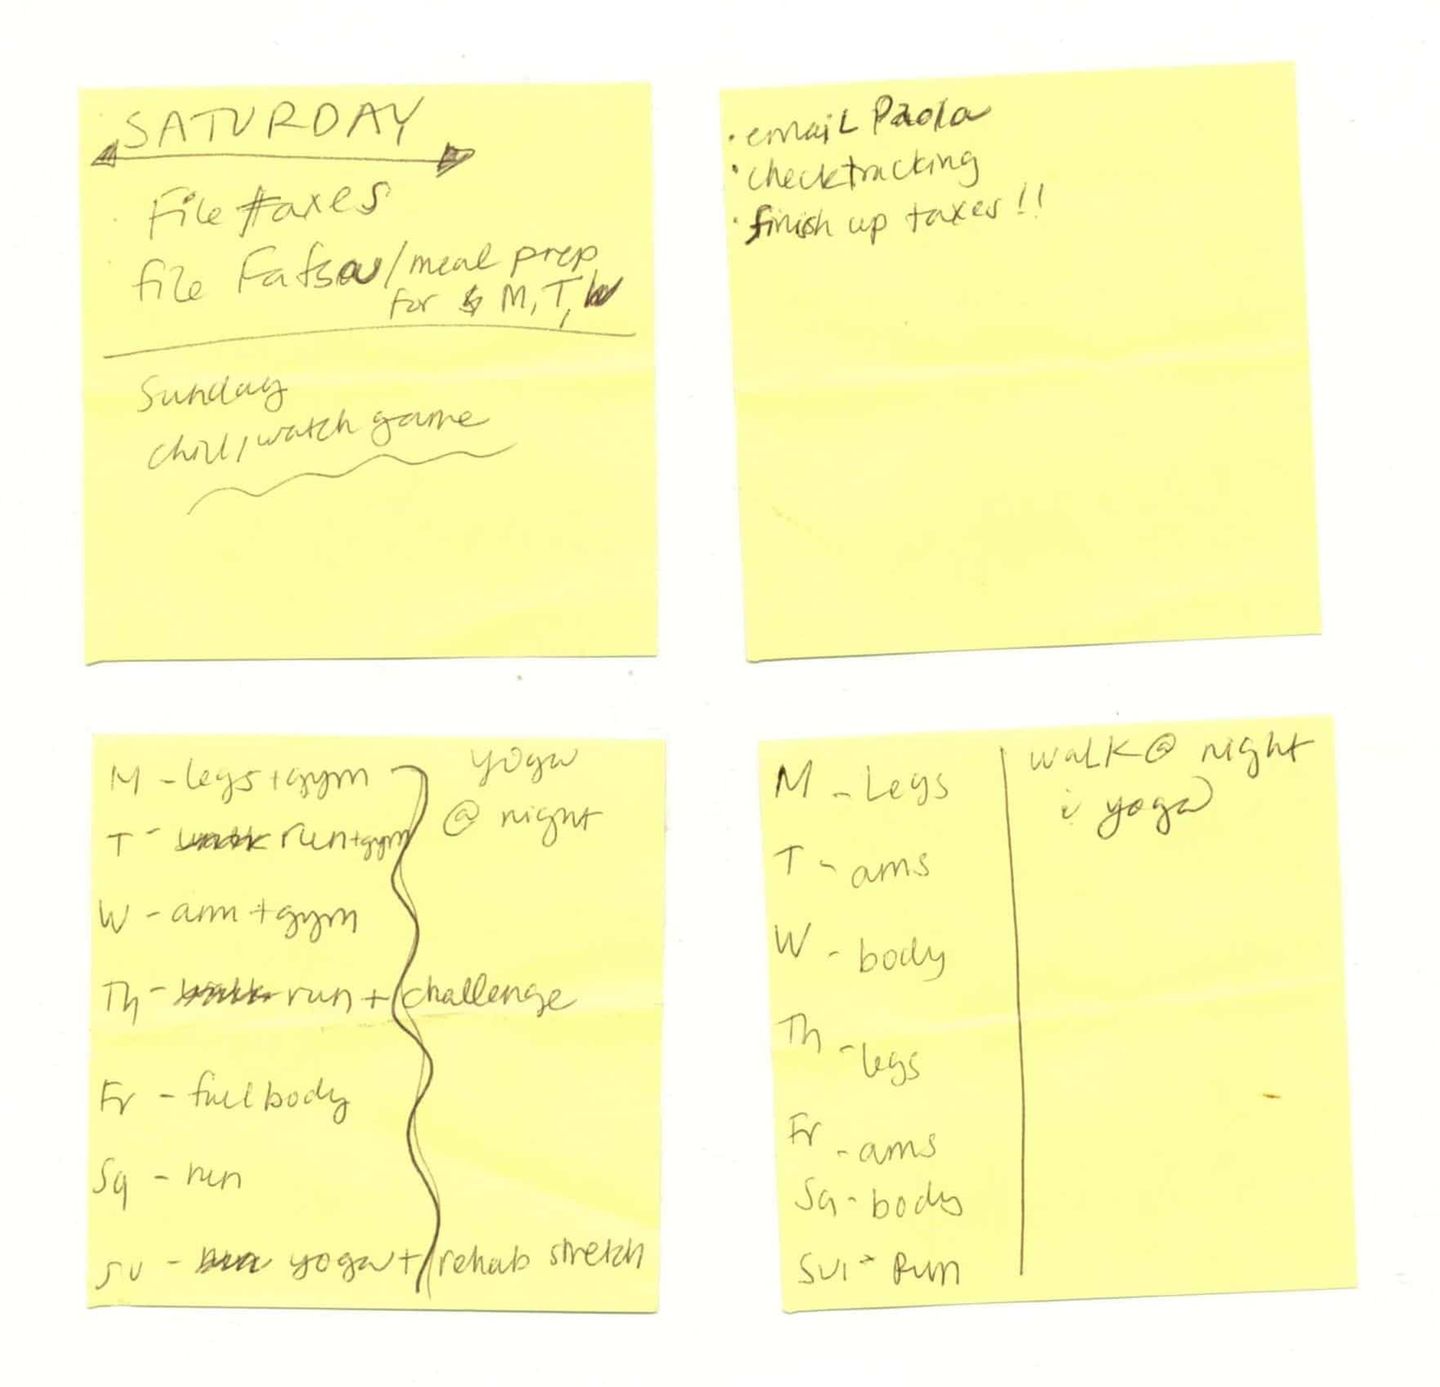 SATURDAY
File taxes
file Fafsa/meal prep
for M, T, W
Sunday
chill, watch game
• email Paola
• check tracking
• finish up taxes!!
M - legs + gym
yoga
@ night
T - run + gym
W - arm + gym
Th - run + challenge
Fr - full body
Sa - run
Su - yoga + rehab stretch
M - Legs
T - arms
W - body
Th - legs
Fr - arms
Sa - body
Su - Run
walk @ night
yoga